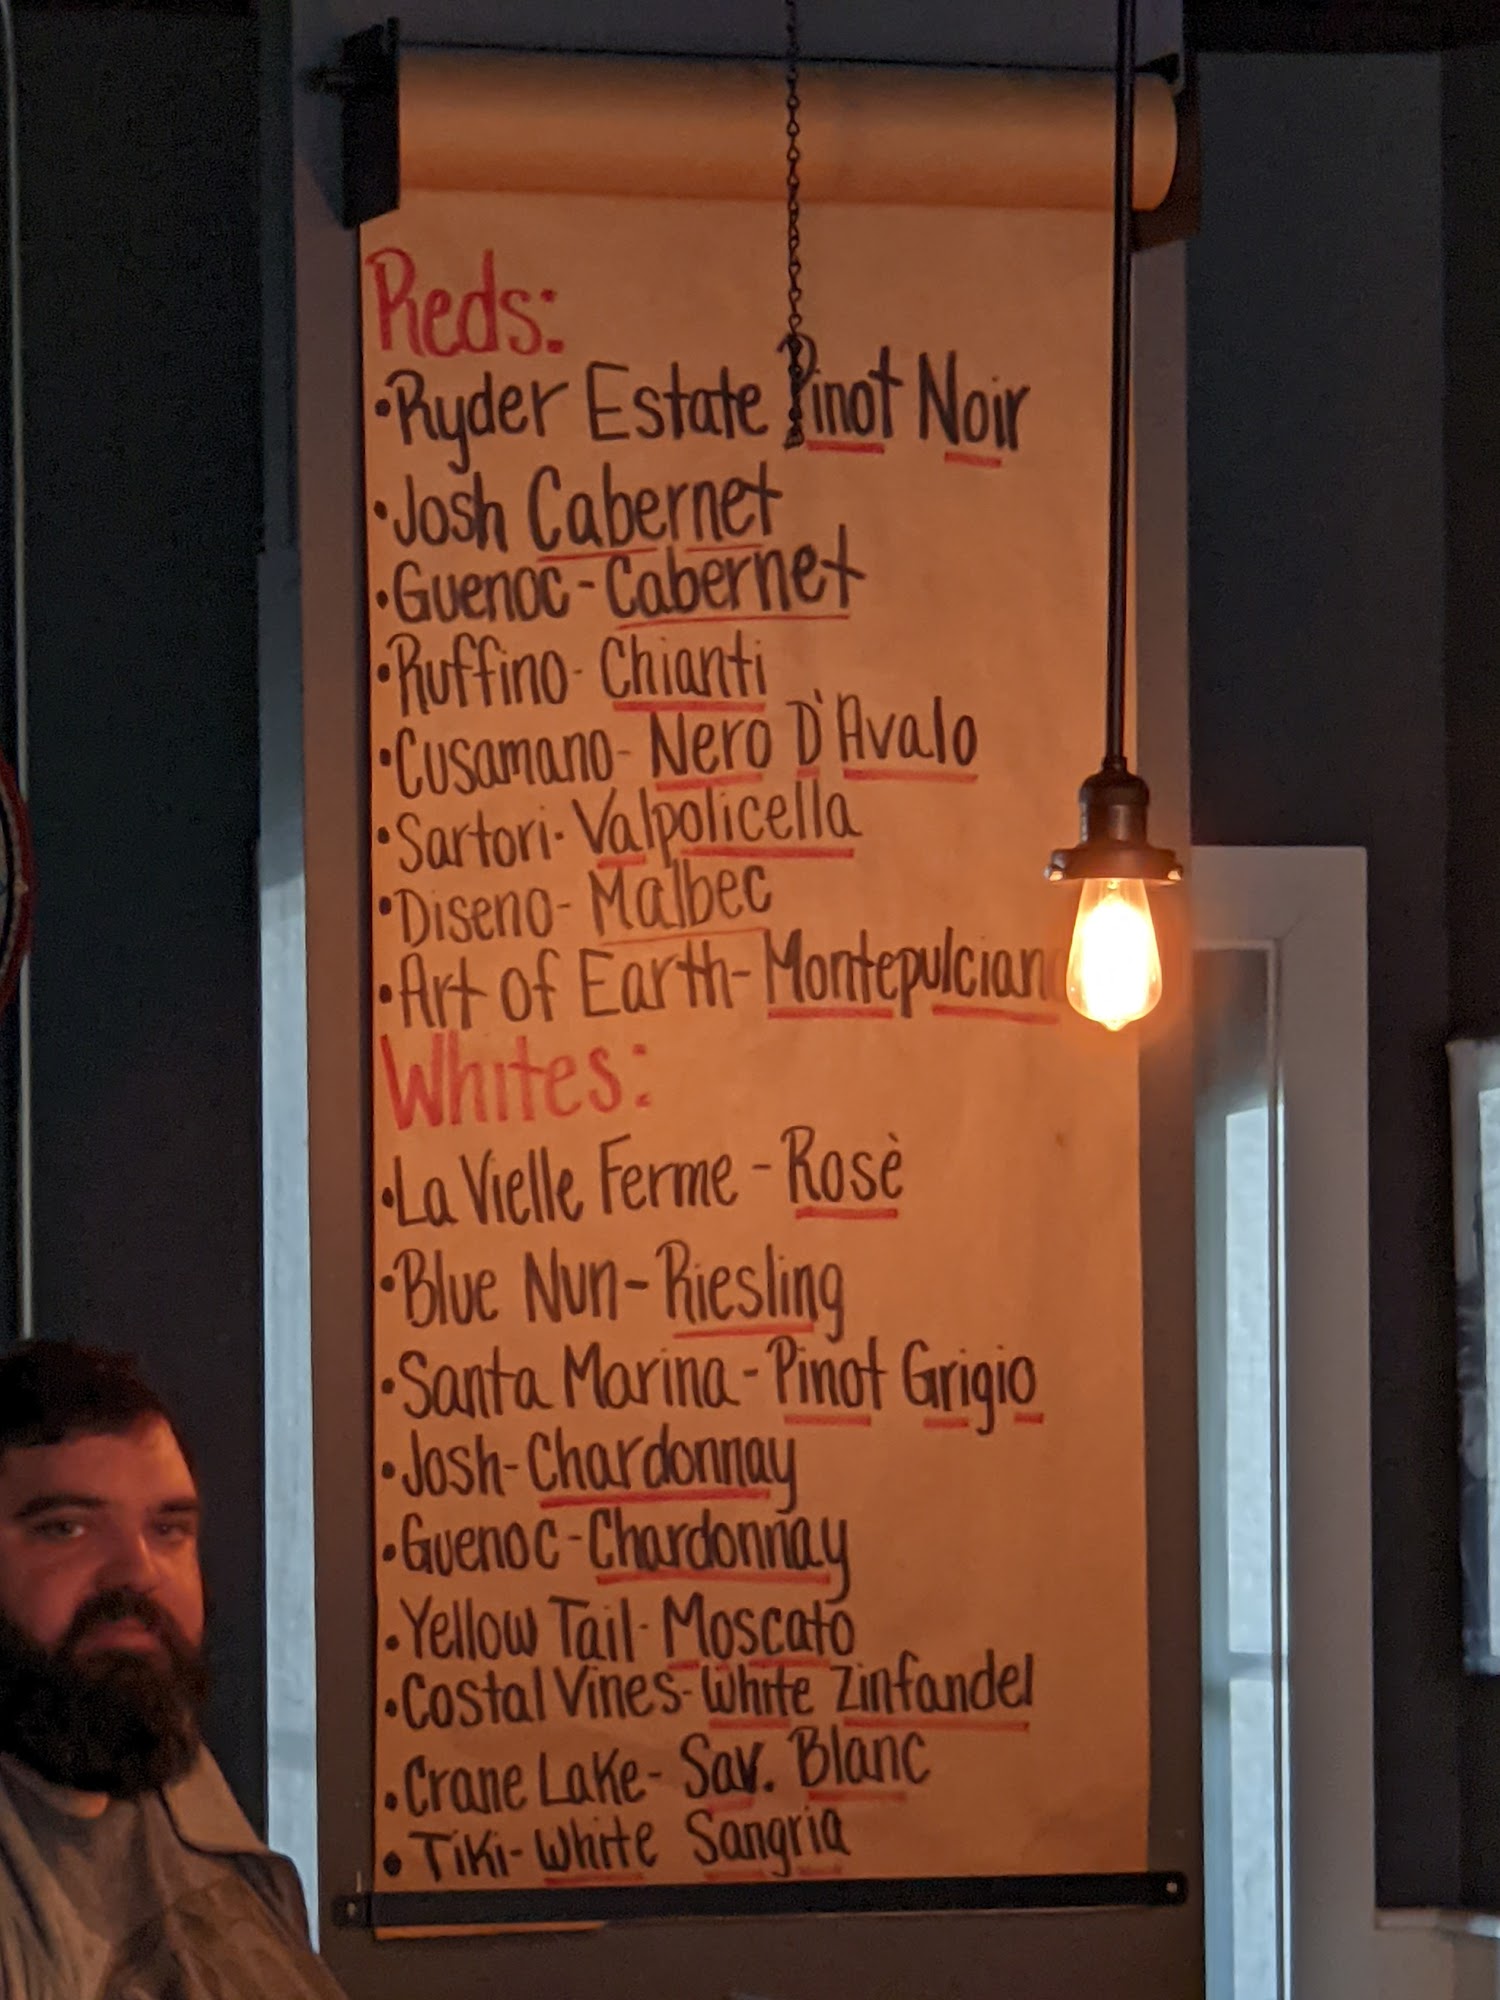 Reds:
• Ryder Estate Pinot Noir
• Josh Cabernet
• Guenoc - Cabernet
• Ruffino - Chianti
• Cusamano - Nero D'Avalo
• Sartori - Valpolicella
• Diseno - Malbec
• Art of Earth - Montepulcian
Whites:
• La Vielle Ferme - Rosè
• Blue Nun - Riesling
• Santa Marina - Pinot Grigio
• Josh - Chardonnay
• Guenoc - Chardonnay
• Yellow Tail - Moscato
• Costal Vines - White Zinfandel
• Crane Lake - Sav. Blanc
• Tiki - White Sangria